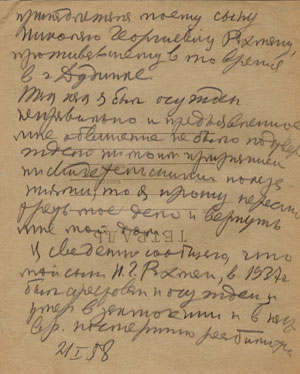 принадлежала моему сыну
Николаю Георгиевичу
проживавшему в то время
в г. Дудинке.
Так как я был осужден
неправильно и предъявленное
мне обвинение не было подтвер
ждено ни моим признанием
ни свидетельскими показа
ниями, то я прошу пересм
треть мое дело и вернуть
мне мой дом.
ТЕТРАДЬ
К сведению сообщаю, что
мой сын Н. Г. в 1937 г
был арестован и осужден и
умер в заключении и в наст
вр. посмертно реабилит
21 I 58